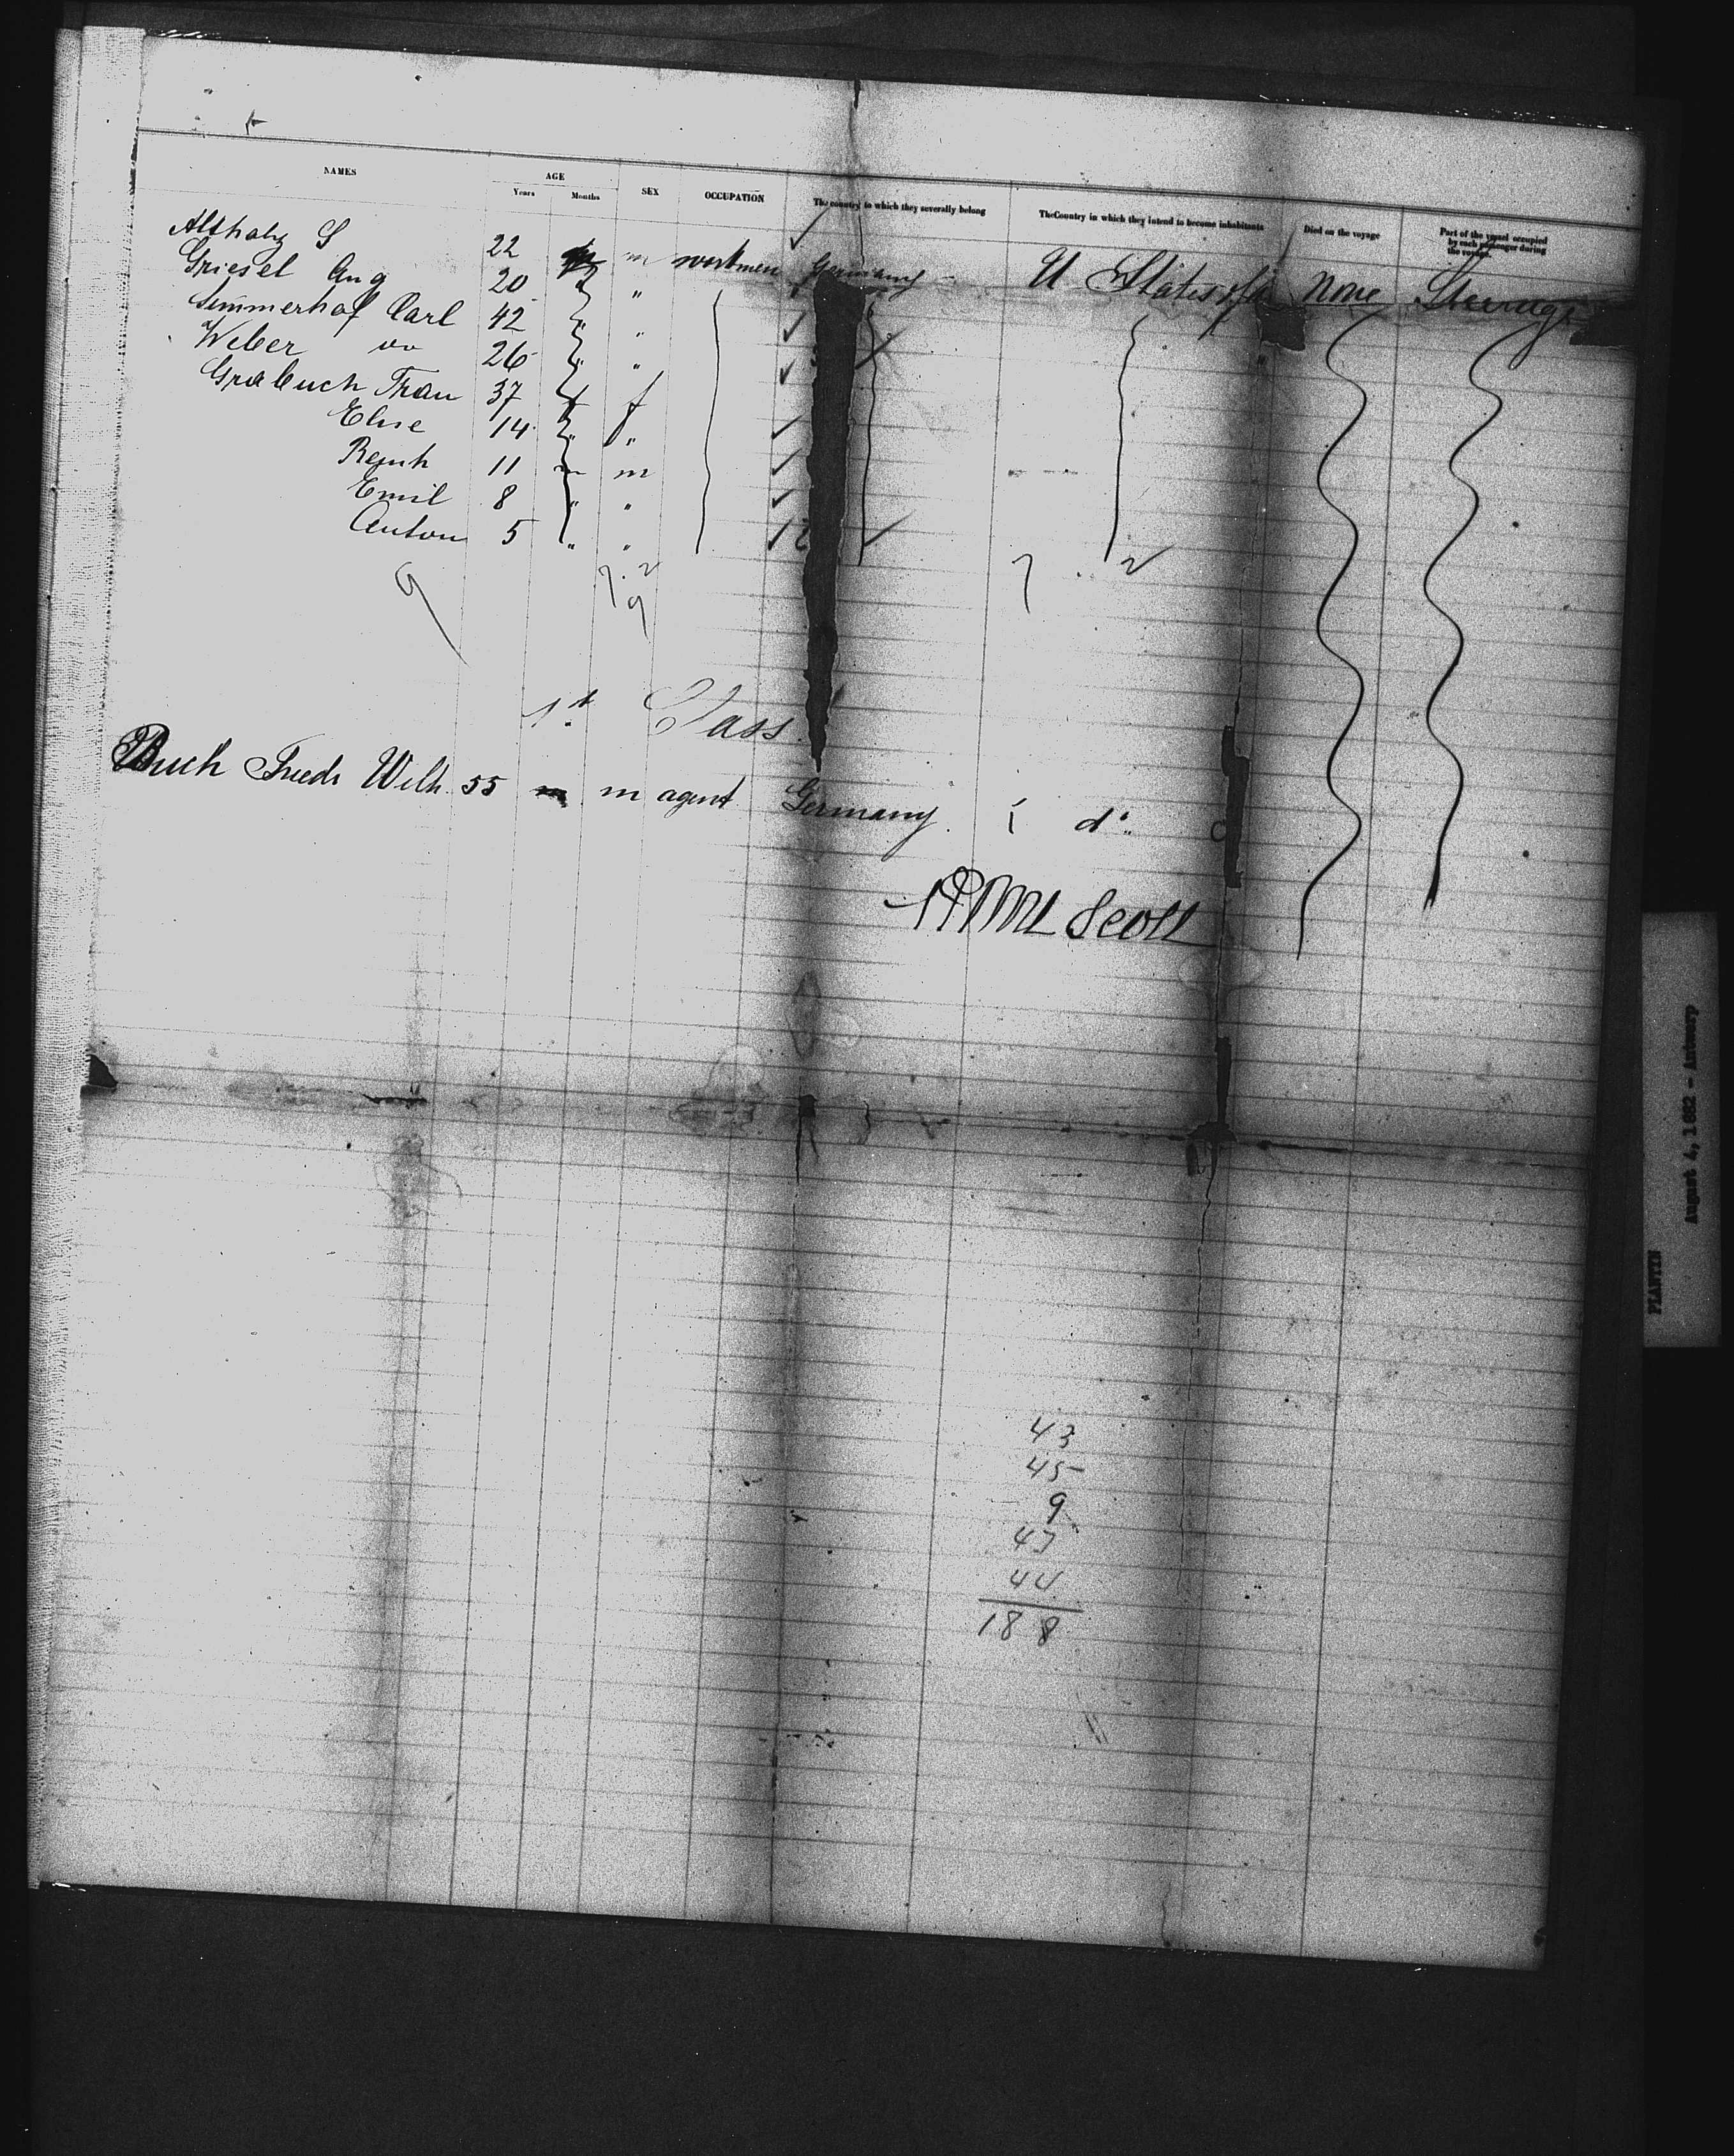 NAMES AGE SEX OCCUPATION The country to which they severally belong The Country in which they intend to become inhabitants Died on the voyage Part of the vessel occupied by each passenger during the voyage.
Years Months
Althalz S 22 m workmen Germany U States of a None Steerage
Griesel Aug 20 "
Simmerhof Carl 42 " "
Weber 26 " "
Grabuch Frau 37 f f
Elise 14 " "
Reinh 11 m m
Emil 8 " "
Anton 5 " "
9 7.2 7.2
9
1st Class
Buch Friedr Wilh. 55 m m agent Germany. d°
Scott
43
45
9
47
44
188
PLANTYN
August 4, 1882 - Antwerp